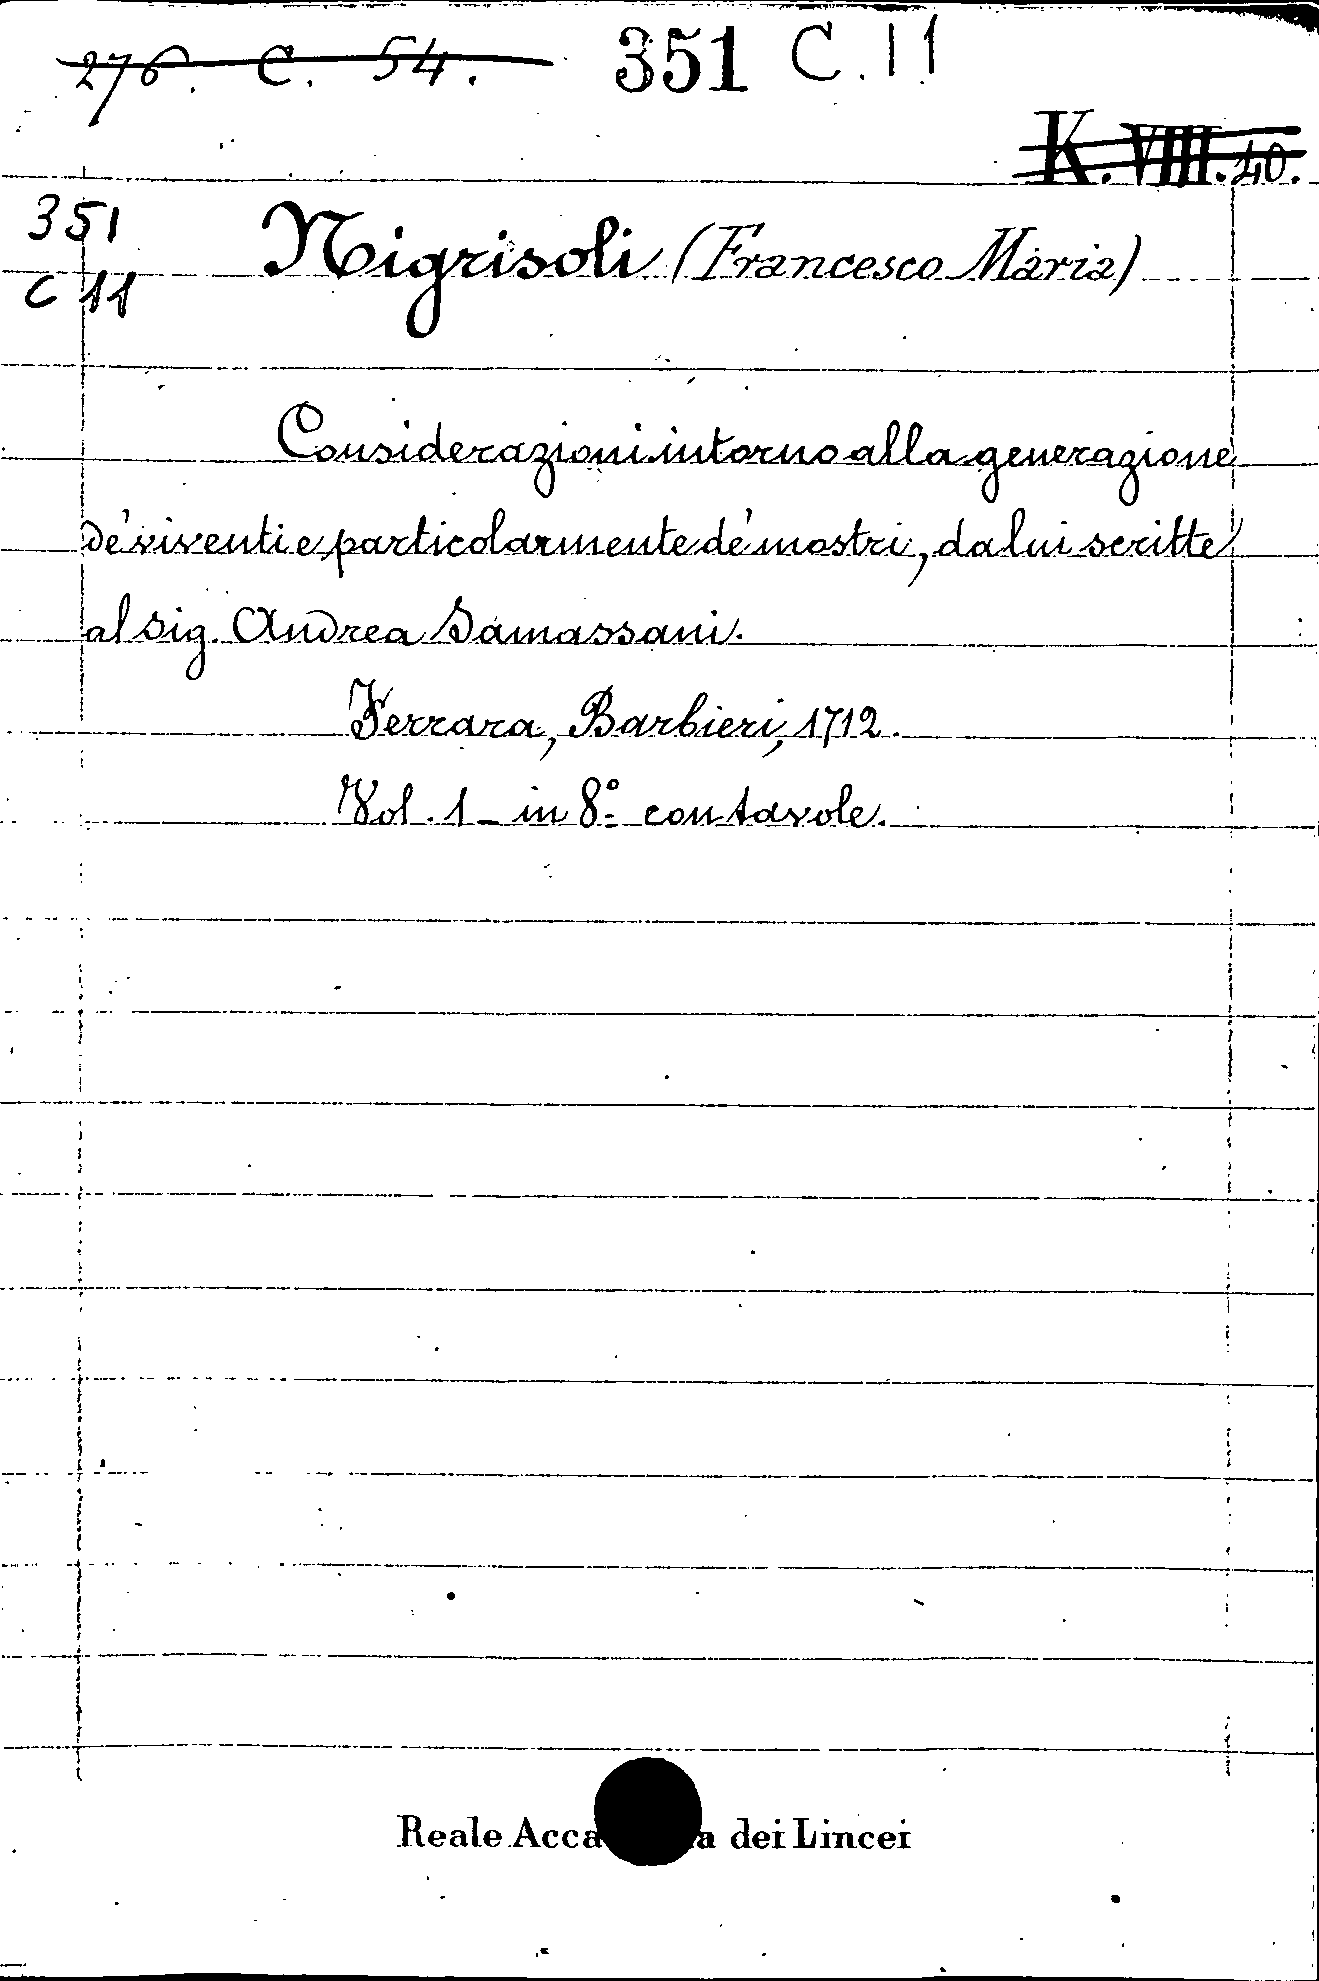 276. C. 54. 351 C.11
K.VIII.40.
351
C 11
Nigrisoli (Francesco Maria)
Considerazioni intorno alla generazione
de' viventi e particolarmente de' mostri, da lui scritte
al Sig. Andrea Samassani.
Ferrara, Barbieri, 1712.
Vol. 1 - in 8º con tavole.
Reale Acca a dei Lincei